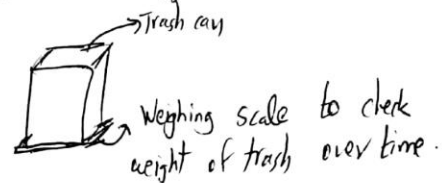 Trash can
Weighing scale to check
weight of trash over time.